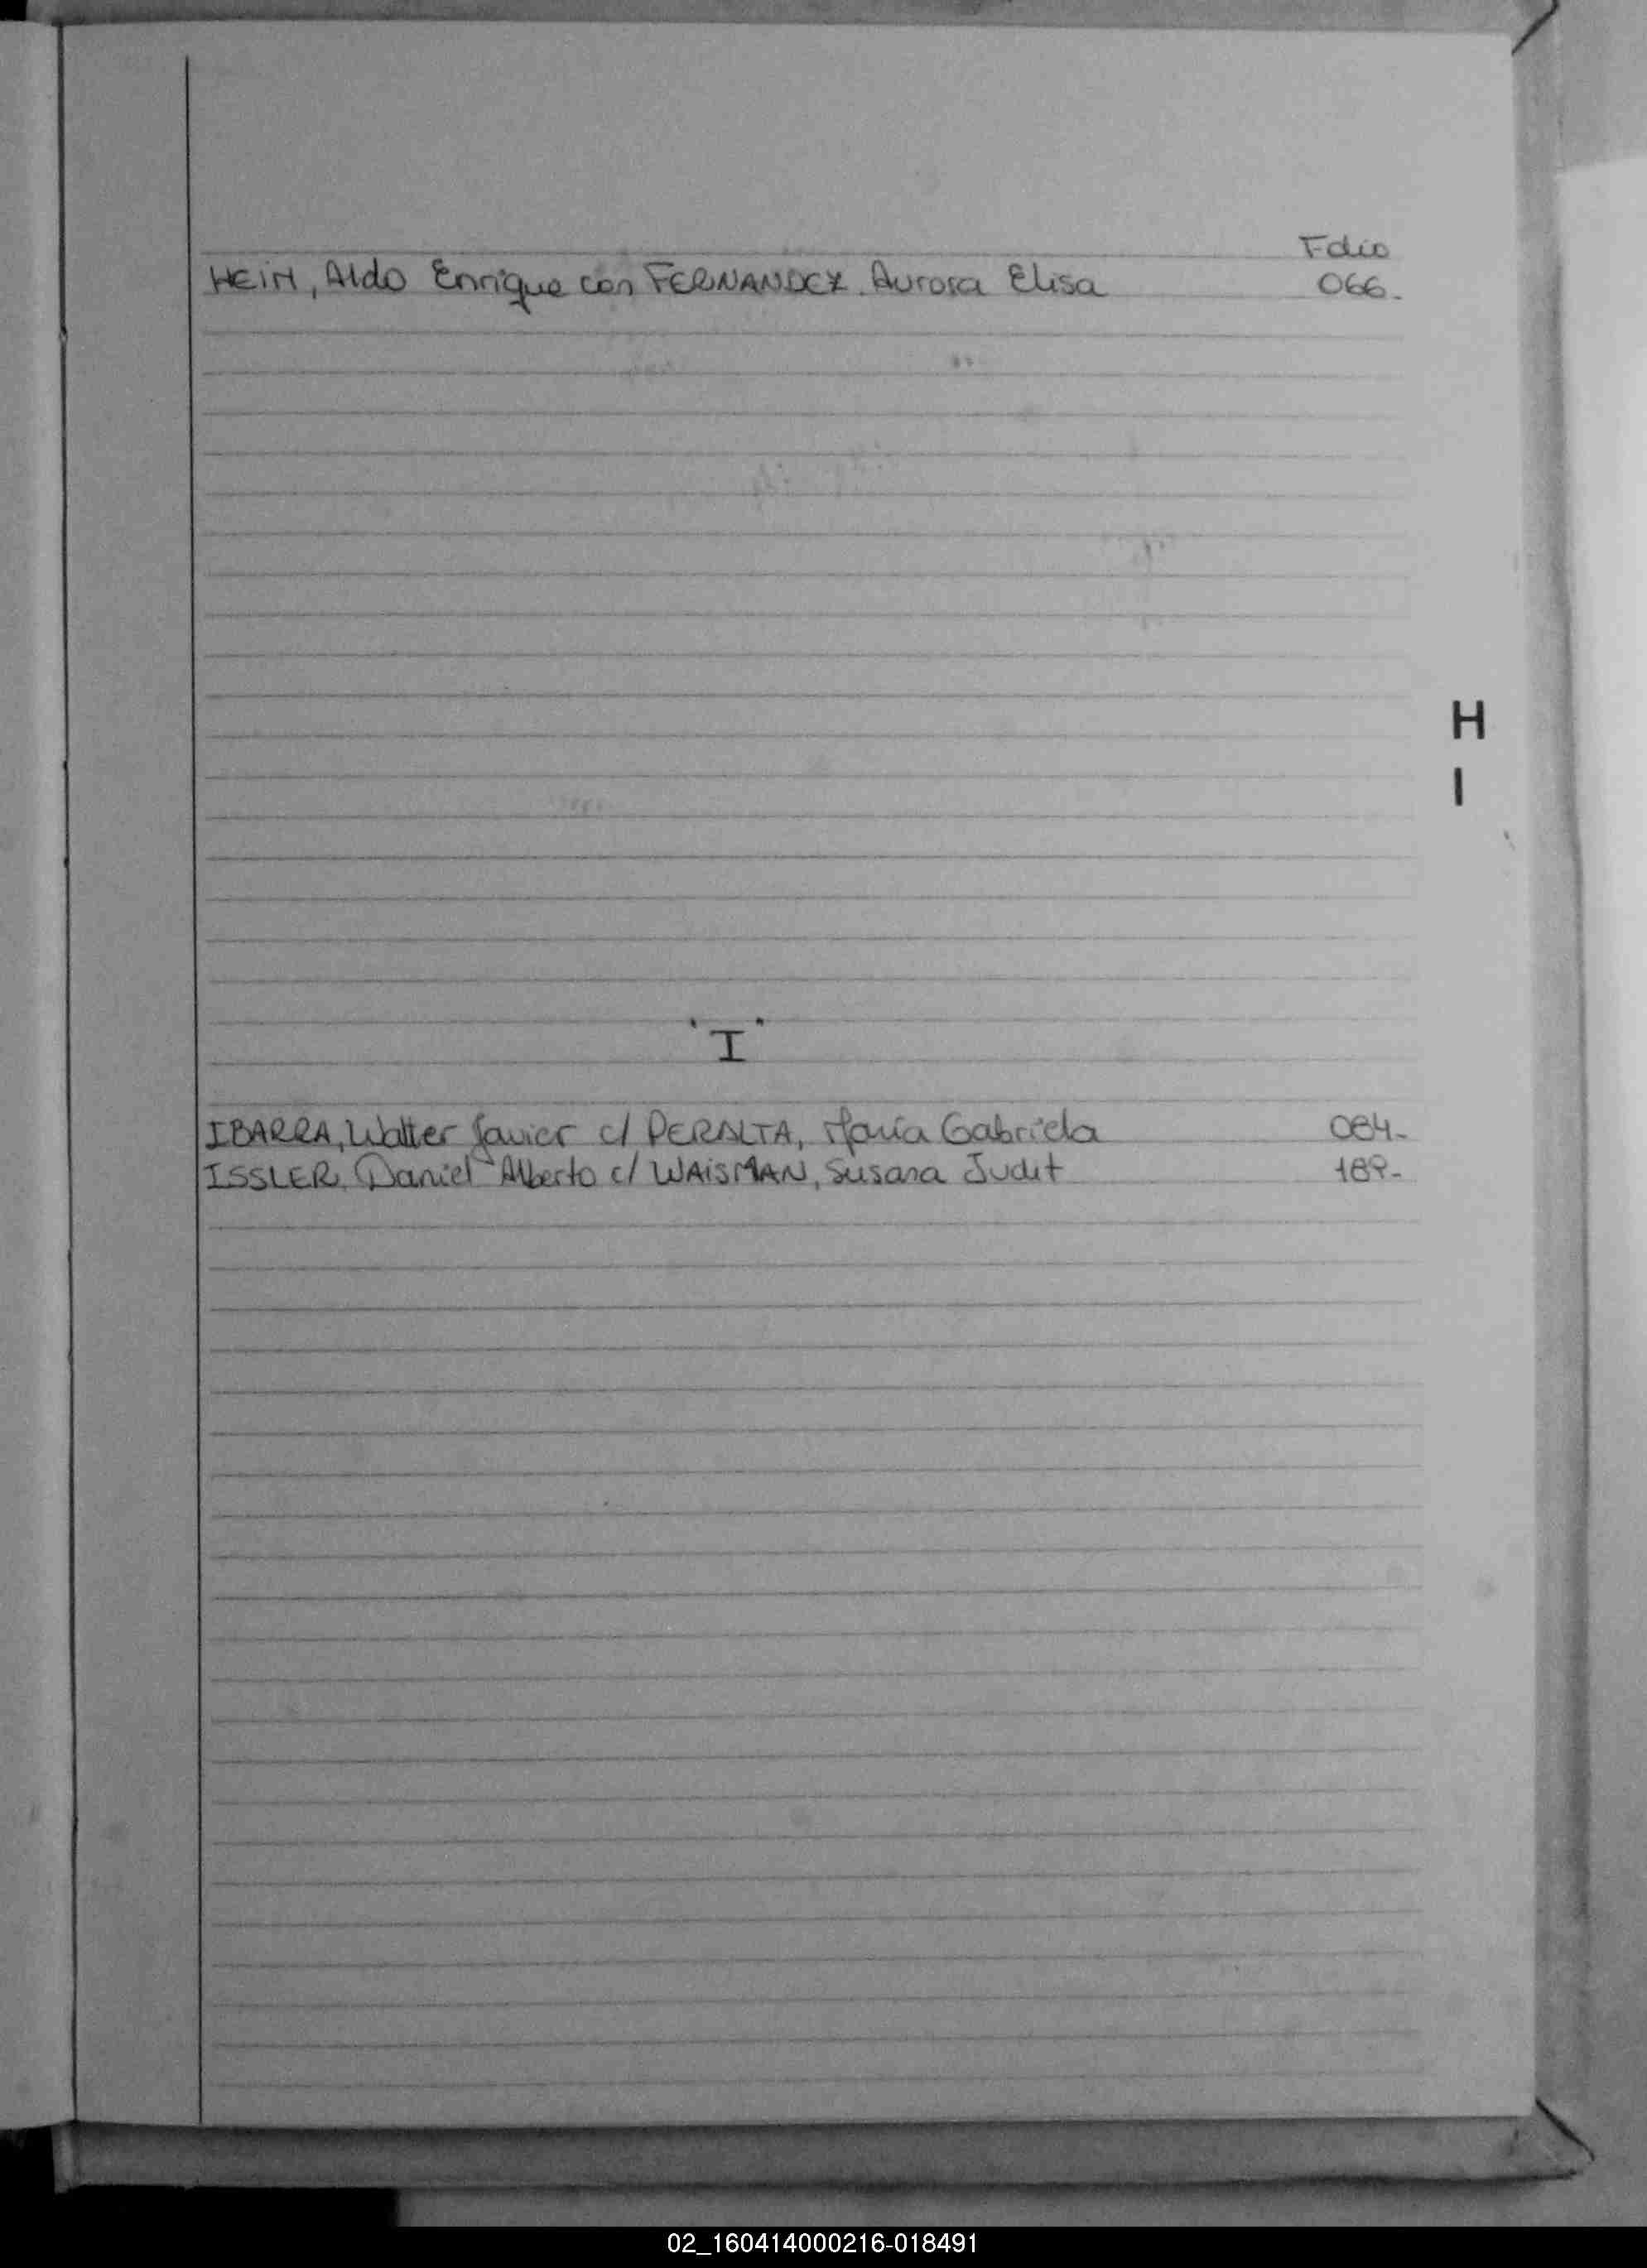 Folio
HEIM, Aldo Enrique con FERNANDEZ. Aurora Elisa 066.-
H
I
"I"
IBARRA, Walter Javier c/ PERALTA, María Gabriela 084.-
ISSLER, Daniel Alberto c/ WAISMAN, Susana Judit 189.-
02_160414000216-018491